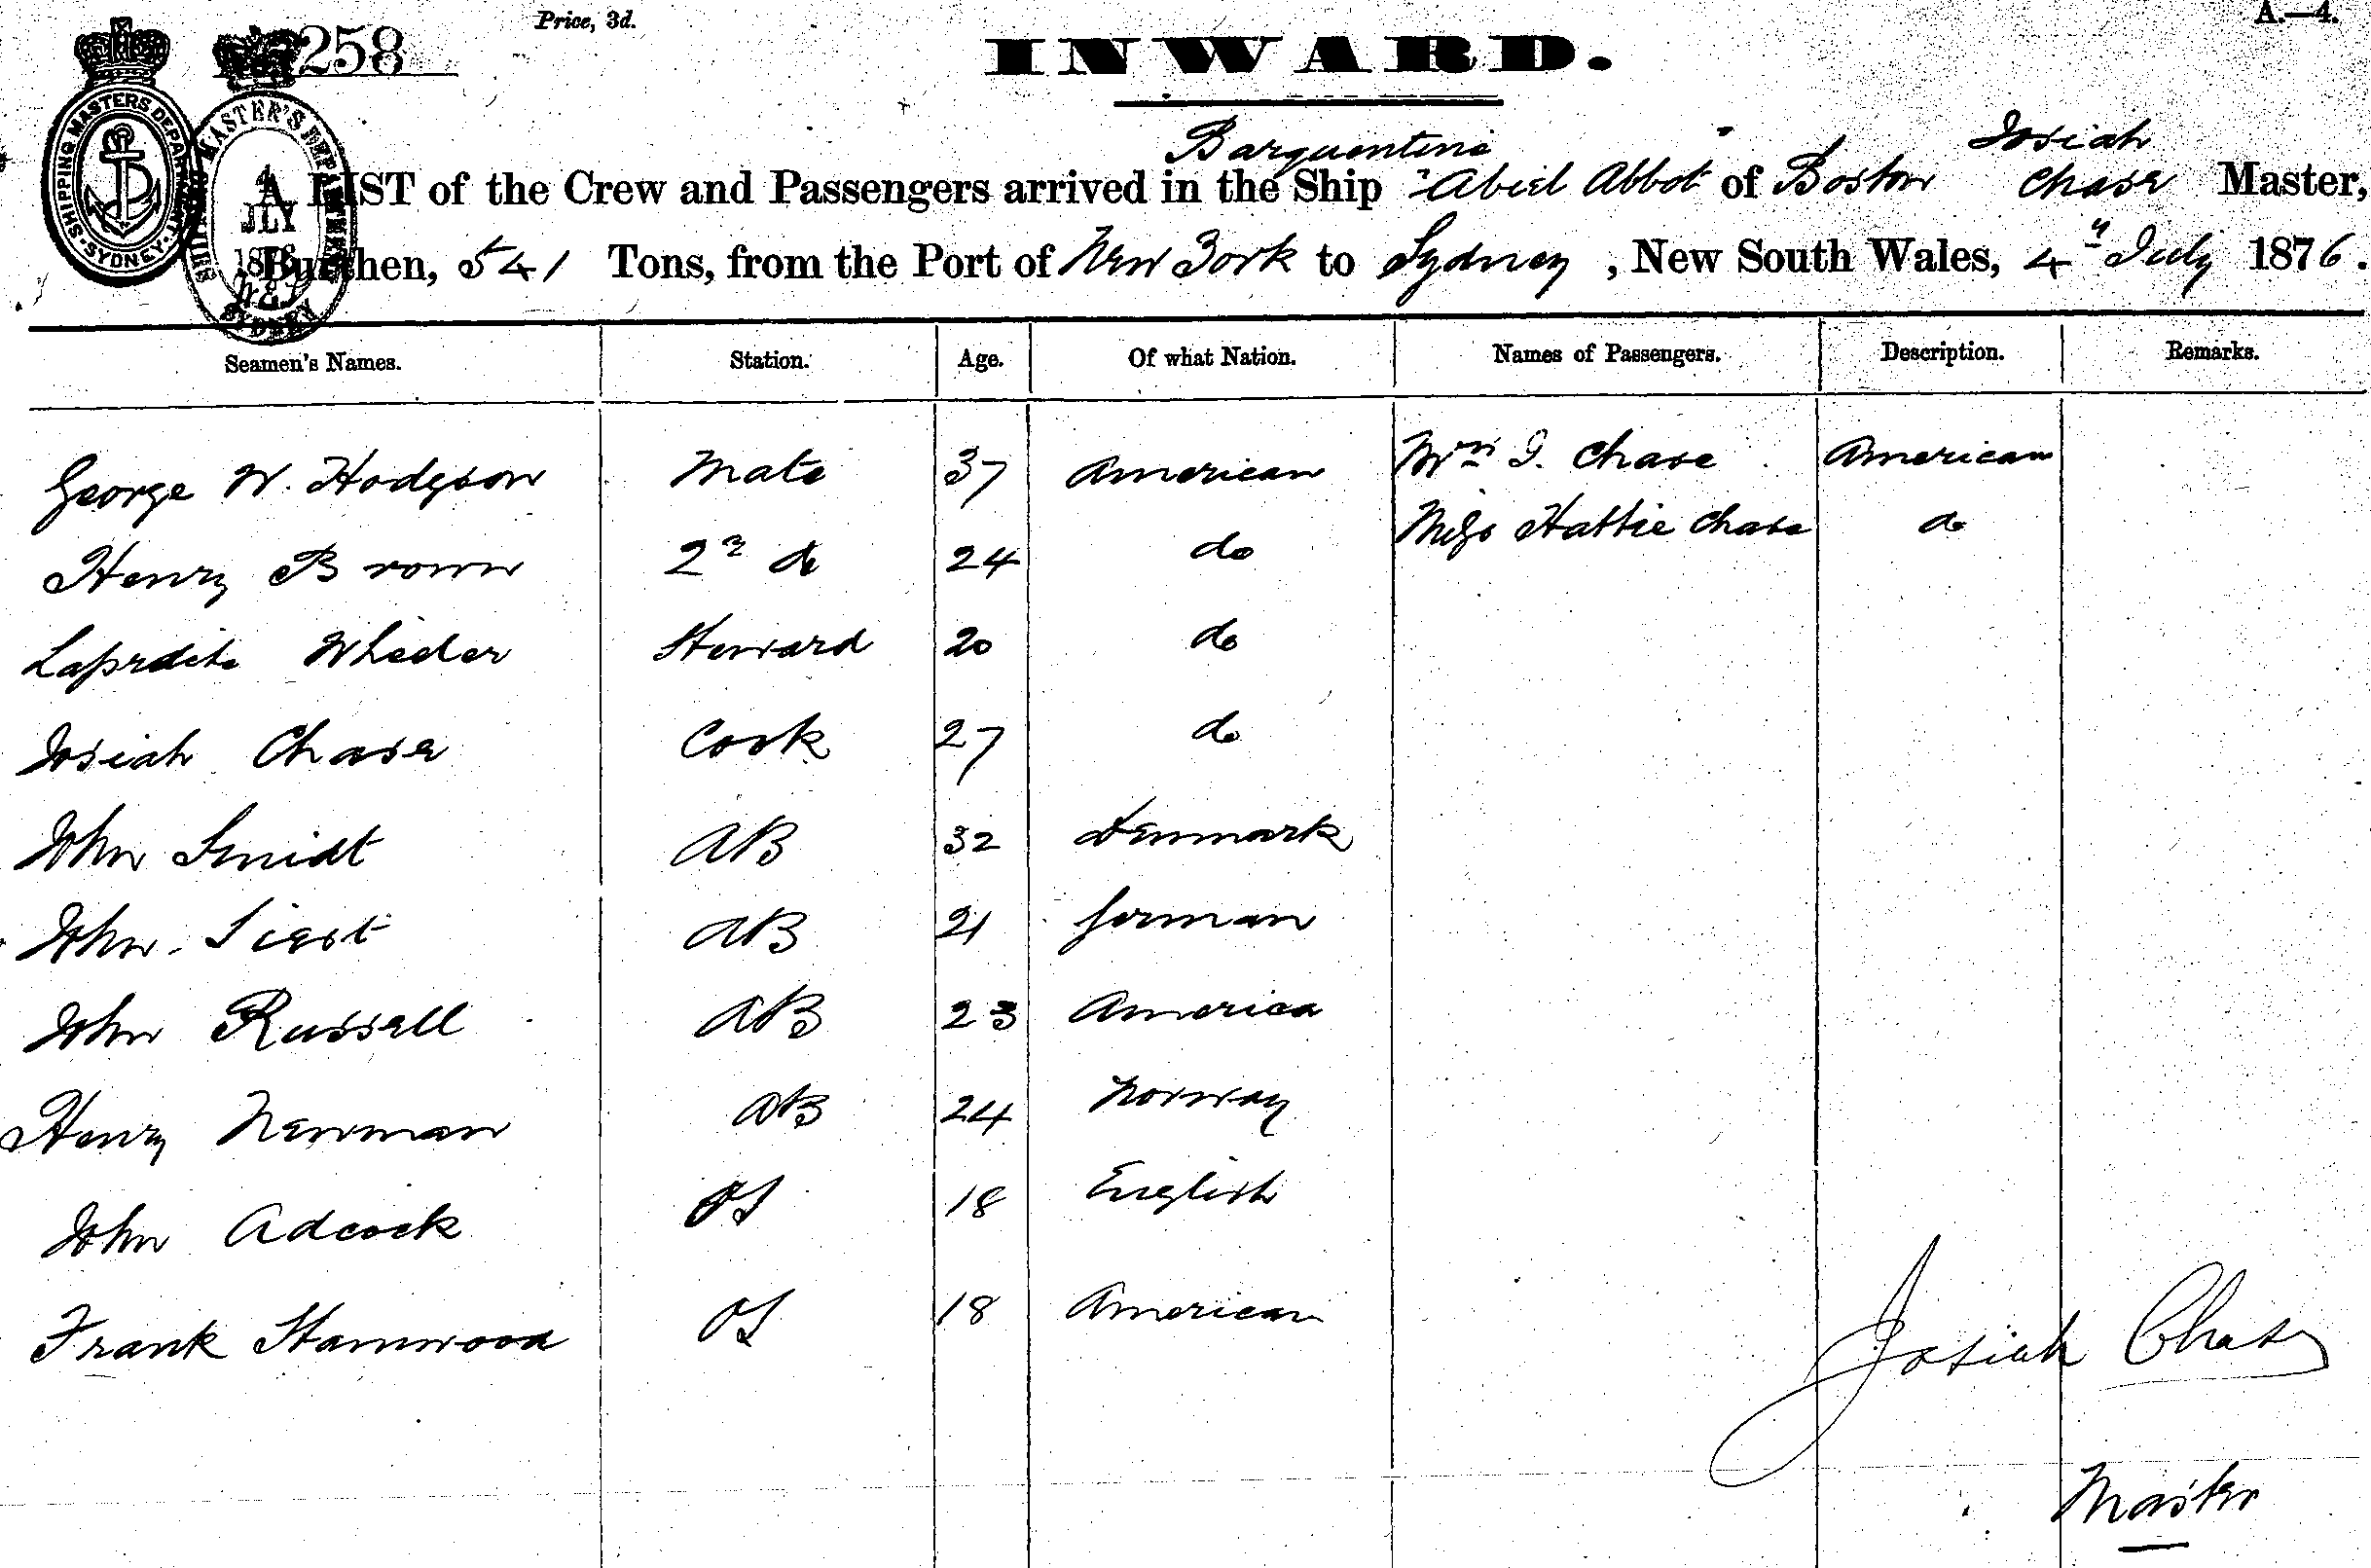 258
Price, 3d.
A.—4.
INWARD.
SHIPPING MASTERS DEPARTMENT
SYDNEY
MASTER'S DEPARTMENT
4
JLY
SYDNEY
Barquentine
Josiah
A LIST of the Crew and Passengers arrived in the Ship "Abiel Abbot of Boston Chase Master,
Burthen, 541 Tons, from the Port of New York to Sydney, New South Wales, 4" July 1876.
Seamen's Names. Station. Age. Of what Nation. Names of Passengers. Description. Remarks.
George W. Hodgson Mate 37 American Mrs J. Chase American
Miss Hattie Chase do
Henry Brown 2nd do 24 do
Wheeler Steward 20 do
Josiah Chase Cook 27 do
John Smidt AB 32 Denmark
John AB 21 German
John Russell AB 23 America
Henry Newman AB 24 Norway
John Adcock OS 18 English
Frank Stanwood OS 18 American
Josiah Chase
Master